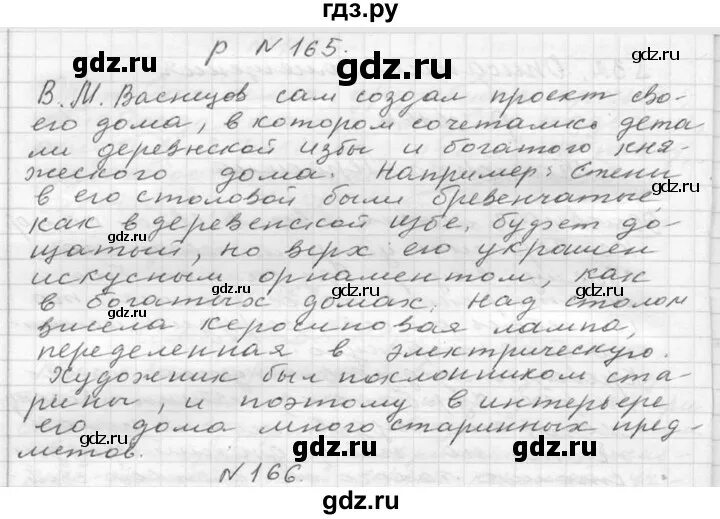 гдз.ру
р N 165.
В. М. Васнецов сам создал проект сво-
его дома, в котором сочетались дета
ли деревнской избы и богатого кня-
жеского дома. Например: Стены
в его столовой были бревенчатые
как в деревенской избе, буфет до-
щатый, но верх его украшен
искусным орнаментом, как
в богатых домах. Над столом
висела керосиновая лампа,
переделенная в электрическую.
Художник был поклонником ста-
рины, и поэтому в интерьере
его дома много старинных пред-
метов.
N 166.
gdz.ru
gdz.ru
gdz.ru
gdz.ru
gdz.ru
gdz.ru
gdz.ru
gdz.ru
gdz.ru
gdz.ru
gdz.ru
gdz.ru
gdz.ru
gdz.ru